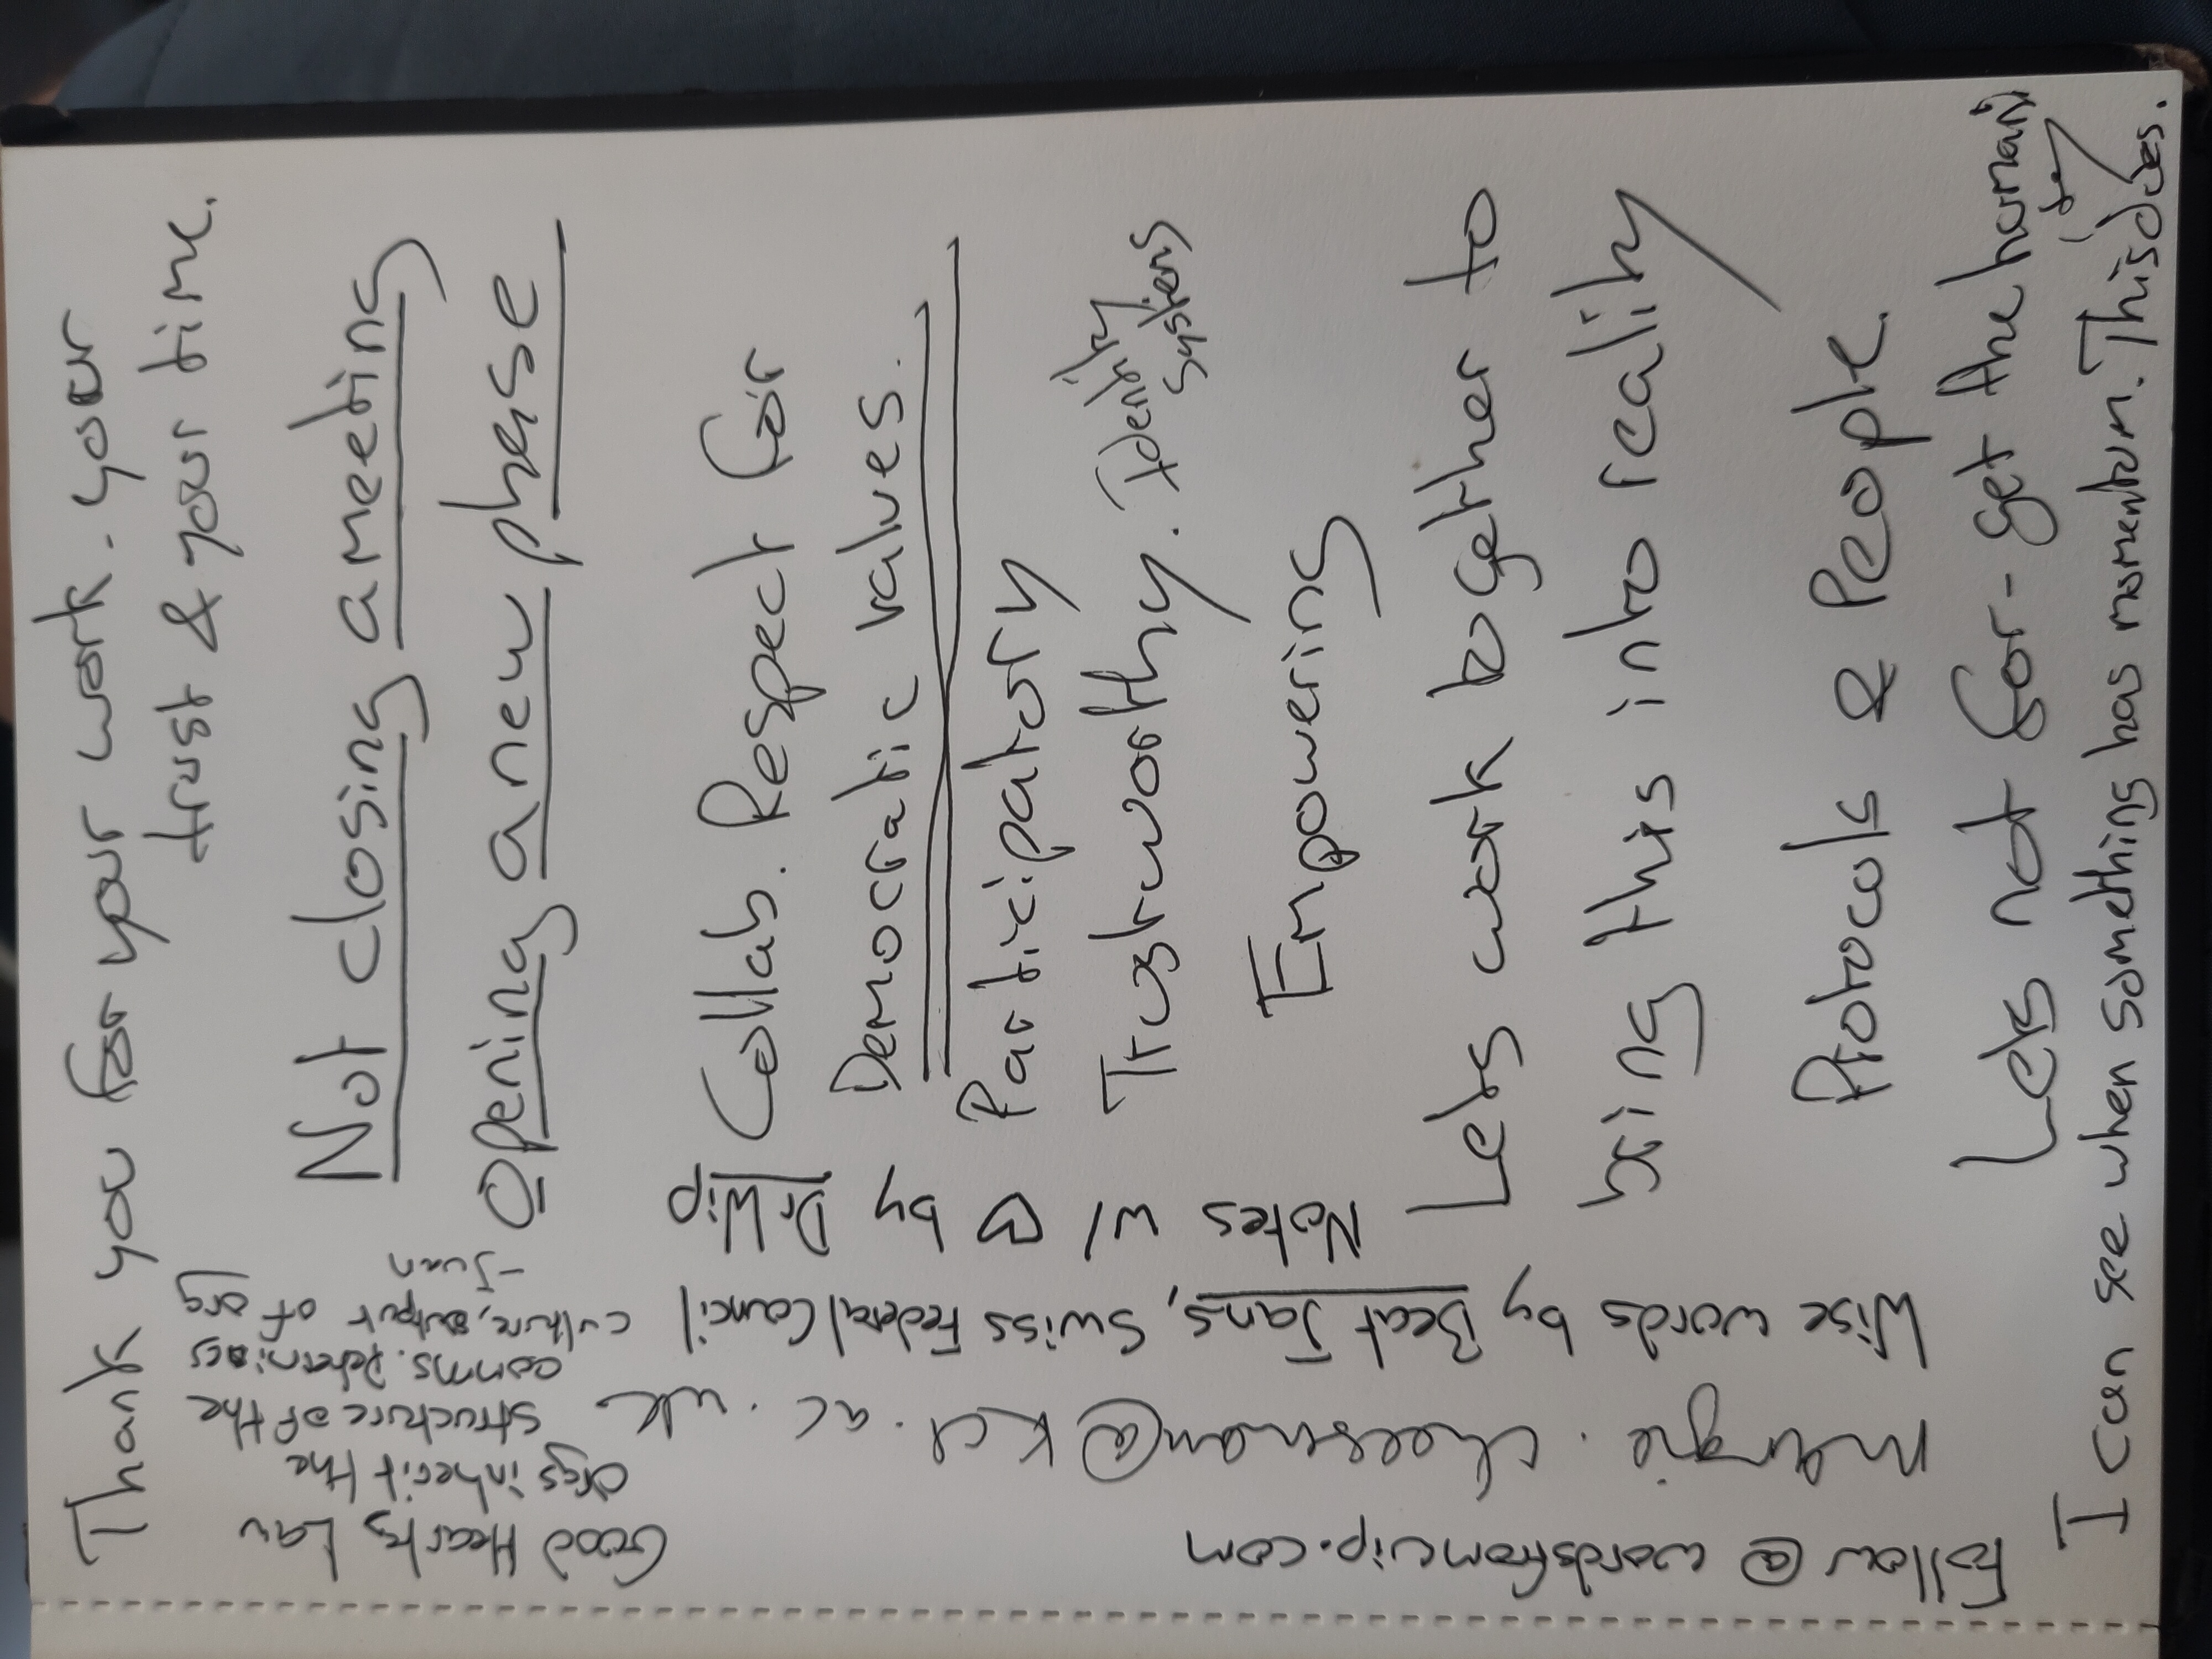 Thank you for your work - your
trust & your time.
Not closing a meeting
Opening a new phase
Collab. Respect for
Democratic values.
Participatory
Trustworthy. (Identity
Systems
Empowering
Lets work together to
bring this into reality
Protocols & People.
Lets not for-get the human
(s)
I can see when something has momentum. This does.
Notes w/ ♡ by Dr Wip
Wise words by Beat Jans, Swiss Federal Council
Margie.cheesman@kcl.ac.uk
Follow @ wordsfromwip.com
Good Hearts Law
Orgs inherit the
structure of the
comms.
culture, output of org
- Juan